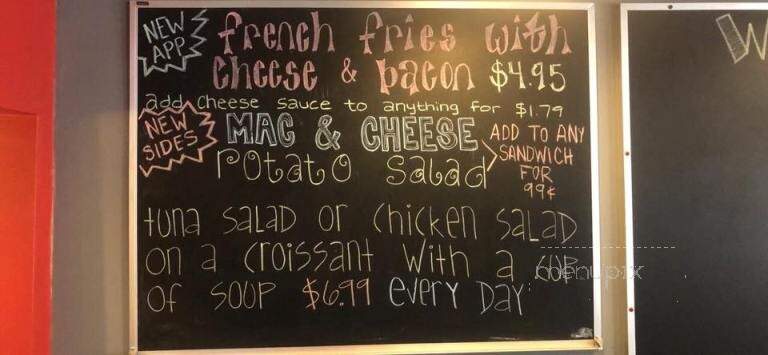 NEW APP
french fries with
cheese & bacon $4.95
add cheese sauce to anything for $1.79
NEW SIDES
MAC & CHEESE
potato salad
ADD TO ANY
SANDWICH
FOR
99¢
tuna SALAD or chicken SALAD
on a croissant with a CUP
of SOUP $6.99 every DAY
menupix
W